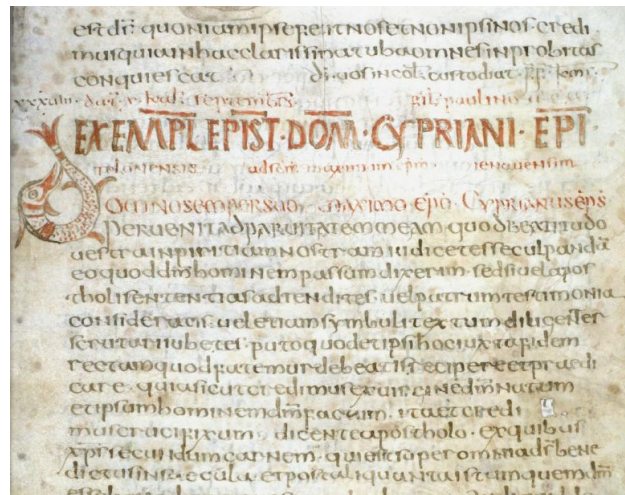 est dnī quoniam ipse reget nos et non ipsi nos credi
mus quia in hac clarissima tuba omnes inprobitas
conquiescat dī uos incol custodiat
xxxiiii dat kal septembrs paulino
EXEMPL EPIST · DOM · CYPRIANI · EPI
TOLONENSIS ad scm maximum epm ienauensim
Domino semper suo maximo epō Cyprianus eps
Peruenit ad paruitatem meam quod beatitudo
uestra inpiritiam nostram iudicet esse culpandā
eo quod dm̄ hominem passum dixerim · sed si uel apos
tholi sententias adtendites uel patrum testimonia
consideratis uel etiam symbuli textum diligenter
scrutari iubetes puto quod et ipsi hoc iuxta fidem
rectam quod fatemur debeatis recipere et praedi
care · quia sicut credimus ex uirgine dm̄ natum
et ipsum hominem dm̄ factum · ita et credi
mus crucifixum dicente apostholo · ex quibus
xpi secundum carnem · qui est super omnia ds bene
dictus in secula · et post aliquanta istum quem dm̄